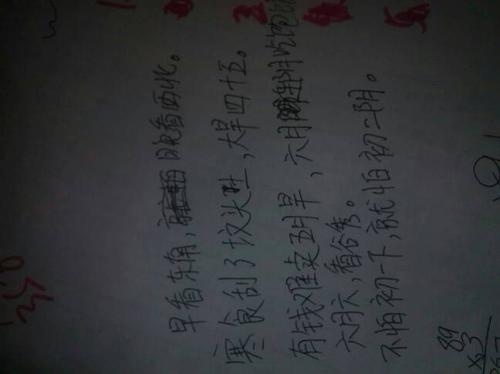 早看东南，晚看西北。
寒食刮了坟头土，大旱四十五。
有钱难买五月旱，六月连阴吃饱
六月六，看谷秀。
不怕初一下，就怕初二阴。
89